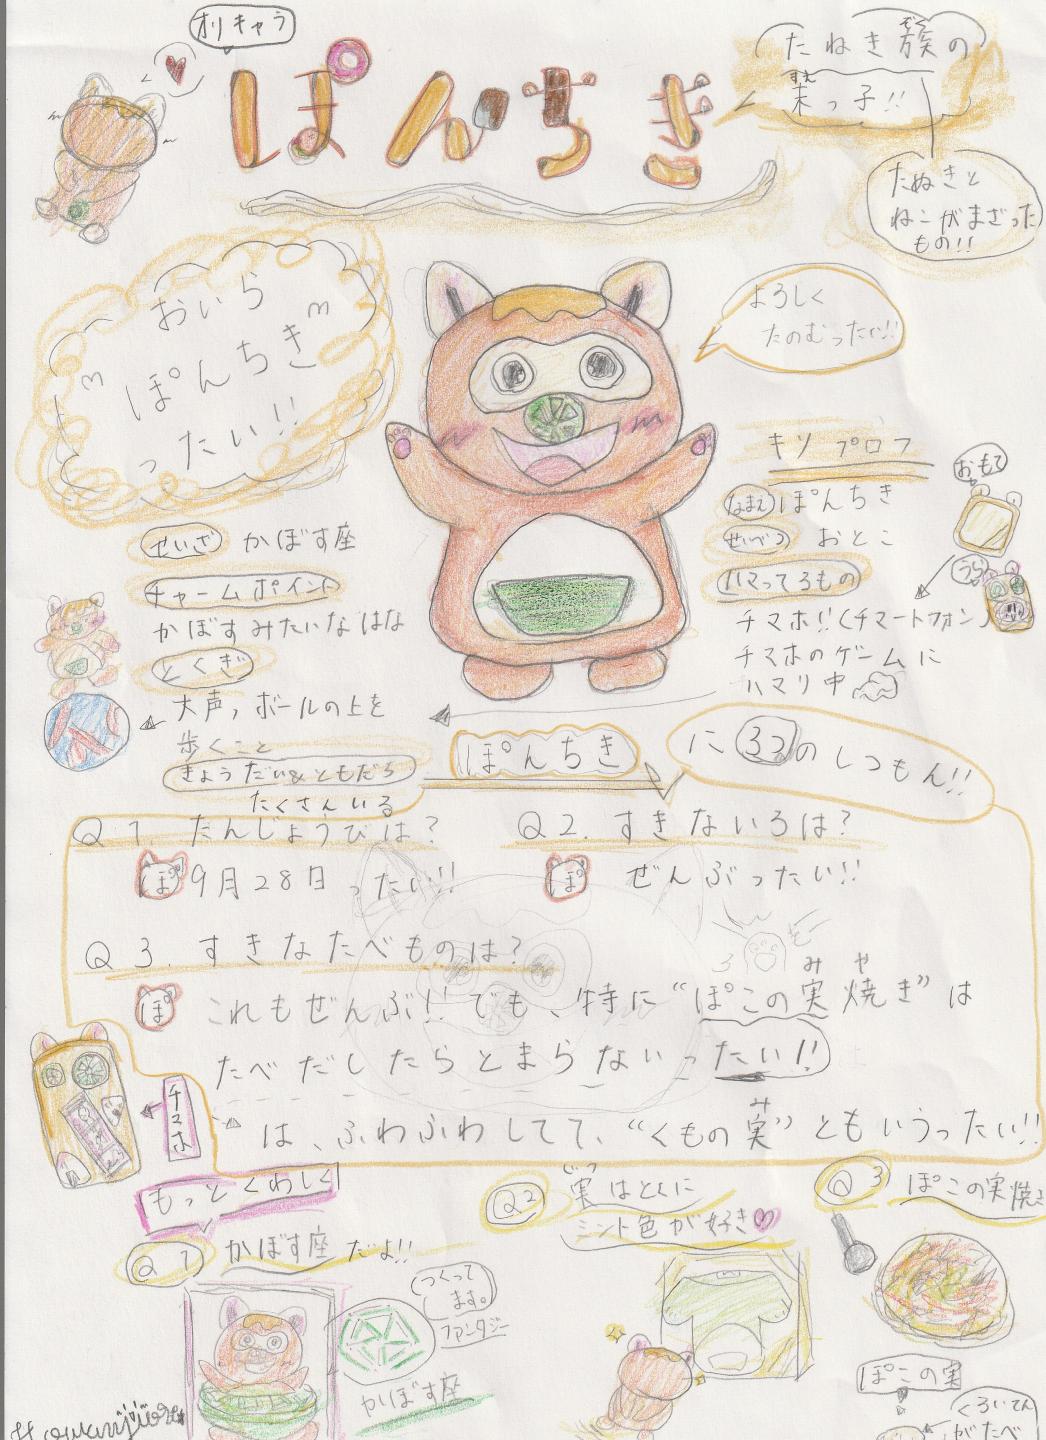 オリキャラ
ぽんちき
たねき族の
ぞく
末っ子!!
すえ
たぬきと
ねこがまざった
もの!!
おいら
ぽんちき
ったい!!
よろしく
たのむったい!!
キソプロフ
なまえ ぽんちき
せいべつ おとこ
ハマってるもの
チマホ!!(チマートフォン)
チマホのゲームに
ハマり中
おもて
うら
せいざ かぼす座
チャームポイント
かぼすみたいなはな
とくぎ
大声,ボールの上を
歩くこと
きょうだい&ともだち
たくさんいる
ぽんちき
に3つのしつもん!!
Q1.たんじょうびは?
ぽ 9月28日ったい!!
Q2.すきないろは?
ぽ ぜんぶったい!!
Q3.すきなたべものは?
ぽ これもぜんぶ!!でも、特に“ぽこの実焼き”は
み や
たべだしたらとまらないったい!!
は、ふわふわしてて、“くもの実”ともいうったい!!
み
チマホ
もっとくわしく
Q1 かぼす座だよ!!
つくって
ます。
ファンタジー
かぼす座
Q2 実はとくに
じつ
ミント色が好き
Q3 ぽこの実焼き
ぽこの実
くろいてん
がたべ